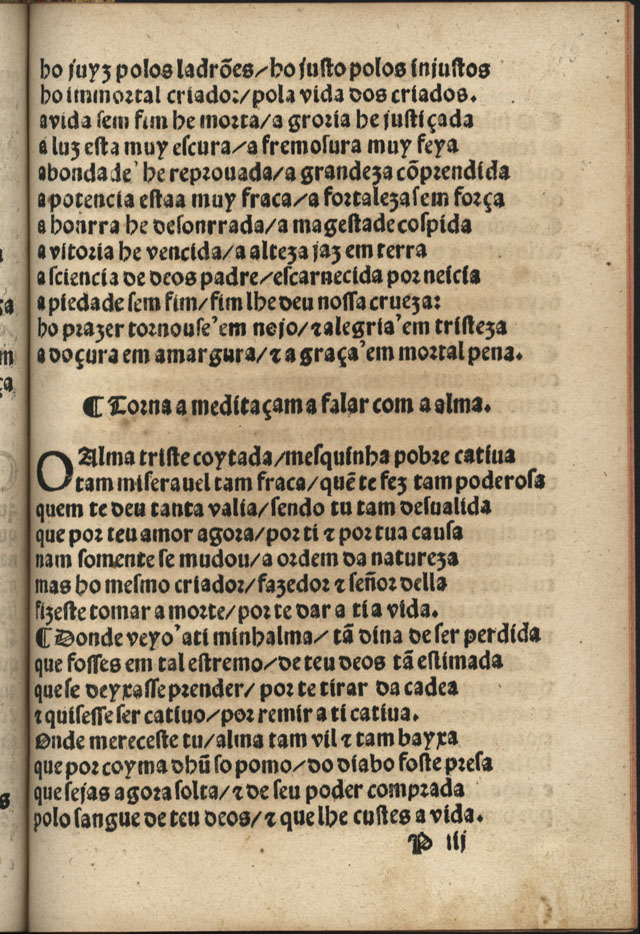 ho juyz polos ladrões/ho justo polos injustos
ho immortal criador/pola vida dos criados.
a vida sem fim he morta/a groria he justiçada
a luz esta muy escura/a fremosura muy feya
a bondade' he reprouada/a grandeza cõprendida
a potencia estaa muy fraca/a fortaleza sem força
a honrra he desonrrada/a magestade cospida
a vitoria he vencida/a alteza jaz em terra
a sciencia de deos padre/escarnecida por neicia
a piedade sem fim/fim lhe deu nossa crueza:
ho prazer tornouse'em nojo/⁊ alegria'em tristeza
a doçura em amargura/⁊ a graça'em mortal pena.
¶ Torna a meditaçam a falar com a alma.
O Alma triste coytada/mesquinha pobre catiua
tam miserauel tam fraca/quẽ te fez tam poderosa
quem te deu tanta valia/sendo tu tam desualida
que por teu amor agora/por ti ⁊ por tua causa
nam somente se mudou/a ordem da natureza
mas ho mesmo criador/fazedor ⁊ señor della
fizeste tomar a morte/por te dar a ti a vida.
¶ Donde veyo'a ti minhalma/tã dina de ser perdida
que fosses em tal estremo/de teu deos tã estimada
que se deyxasse prender/por te tirar da cadea
⁊ quisesse ser catiuo/por remir a ti catiua.
Onde mereceste tu/alma tam vil ⁊ tam bayxa
que por coyma dhũ so pomo/do diabo foste presa
que sejas agora solta/⁊ de seu poder comprada
polo sangue de teu deos/⁊ que lhe custes a vida.
P iij